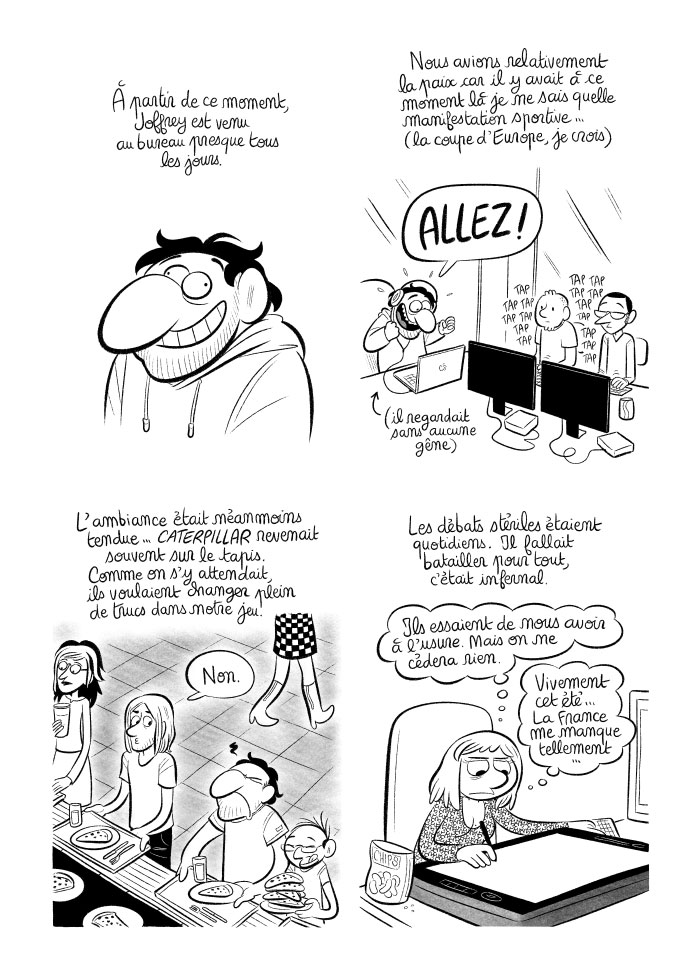 À partir de ce moment,
Joffrey est venu
au bureau presque tous
les jours.
Nous avions relativement
la paix car il y avait à ce
moment là je ne sais quelle
manifestation sportive...
(la coupe d'Europe, je crois)
ALLEZ!
TAP
TAP TAP
TAP TAP
TAP
TAP
TAP TAP
TAP TAP
TAP
TAP
TAP
TAP
(il regardait
sans aucune
gêne)
L'ambiance était néanmoins
tendue... CATERPILLAR revenait
souvent sur le tapis.
Comme on s'y attendait,
ils voulaient changer plein
de trucs dans notre jeu.
Non.
Les débats stériles étaient
quotidiens. Il fallait
batailler pour tout,
c'était infernal.
Ils essaient de nous avoir
à l'usure. Mais on ne
cédera rien.
Vivement
cet été...
La France
me manque
tellement
...
CHIPS